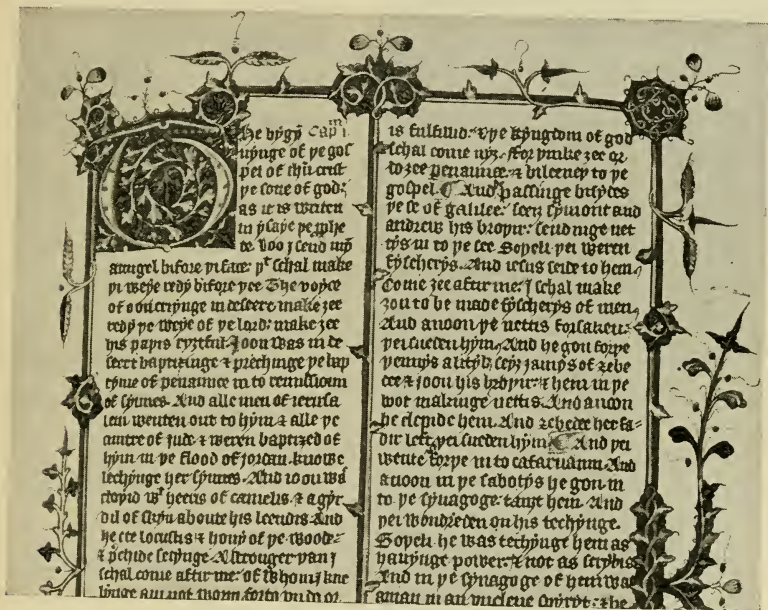 The bygȳ Cap i.m
nynge of þe gos
pel of ihū crist
þe sone of god:
as it is writen
in ysaye þe ꝓphe
te. loo I send myn
aungel bifore þi face: þt schal make
þi weye redy bifore þee The voyce
of oon cryinge in deseert make zee
redy þe weye of þe lord: make zee
his paþis ryztful. Joon was in de
seert baptizinge & prechinge þe bap
tysme of penaunce in to remissioun
of synnes. And alle men of ierusa
lem wenten out to hym & alle þe
cuntre of jude & weren baptized of
hym in þe flood of jordan. knowe
lechynge her synnes. And ioon was
cloþid wt heeris of camelis. & a gyr
dil of skyn aboute his leendis. And
he ete locustis & hony of þe woode:
& p̄chide seiynge A stronger þan I
schal come aftir me: of whom I kne
lynge am not worþi forto vndo or
is fulfillid. & þe kyngdom of god
schal come nyz. ffor þinke zee or
do zee penaunce. & bileeueþ to þe
gospel. And passinge bisydes
þe se of galilee. seez symont and
andrew his broþir. sendinge net
tys in to þe see Soþeli þei weren
fyscherys. And iesus seide to hem
Come zee aftir me: I schal make
zou to be made fyscherys of men.
And anoon þe nettis forsaken:
þei sueden hym. And he gon forþe
þennys a lityl. seez jamys of zebe
dee & joon his broþir & hem in þe
boot makinge nettis. And anoon
he clepide hem. And zebedee her fa-
dir left þei sueden hym. And þei
wente forþe in to cafarnaum. And
anoon in þe sabotys he gon in
to þe synagoge. tauzt hem. And
þei wondreden on his techynge.
Soþeli he was techynge hem as
hauynge power. & not as scrybis
And in þe synagoge of hem was
a man in an vnclene spiryt. & he